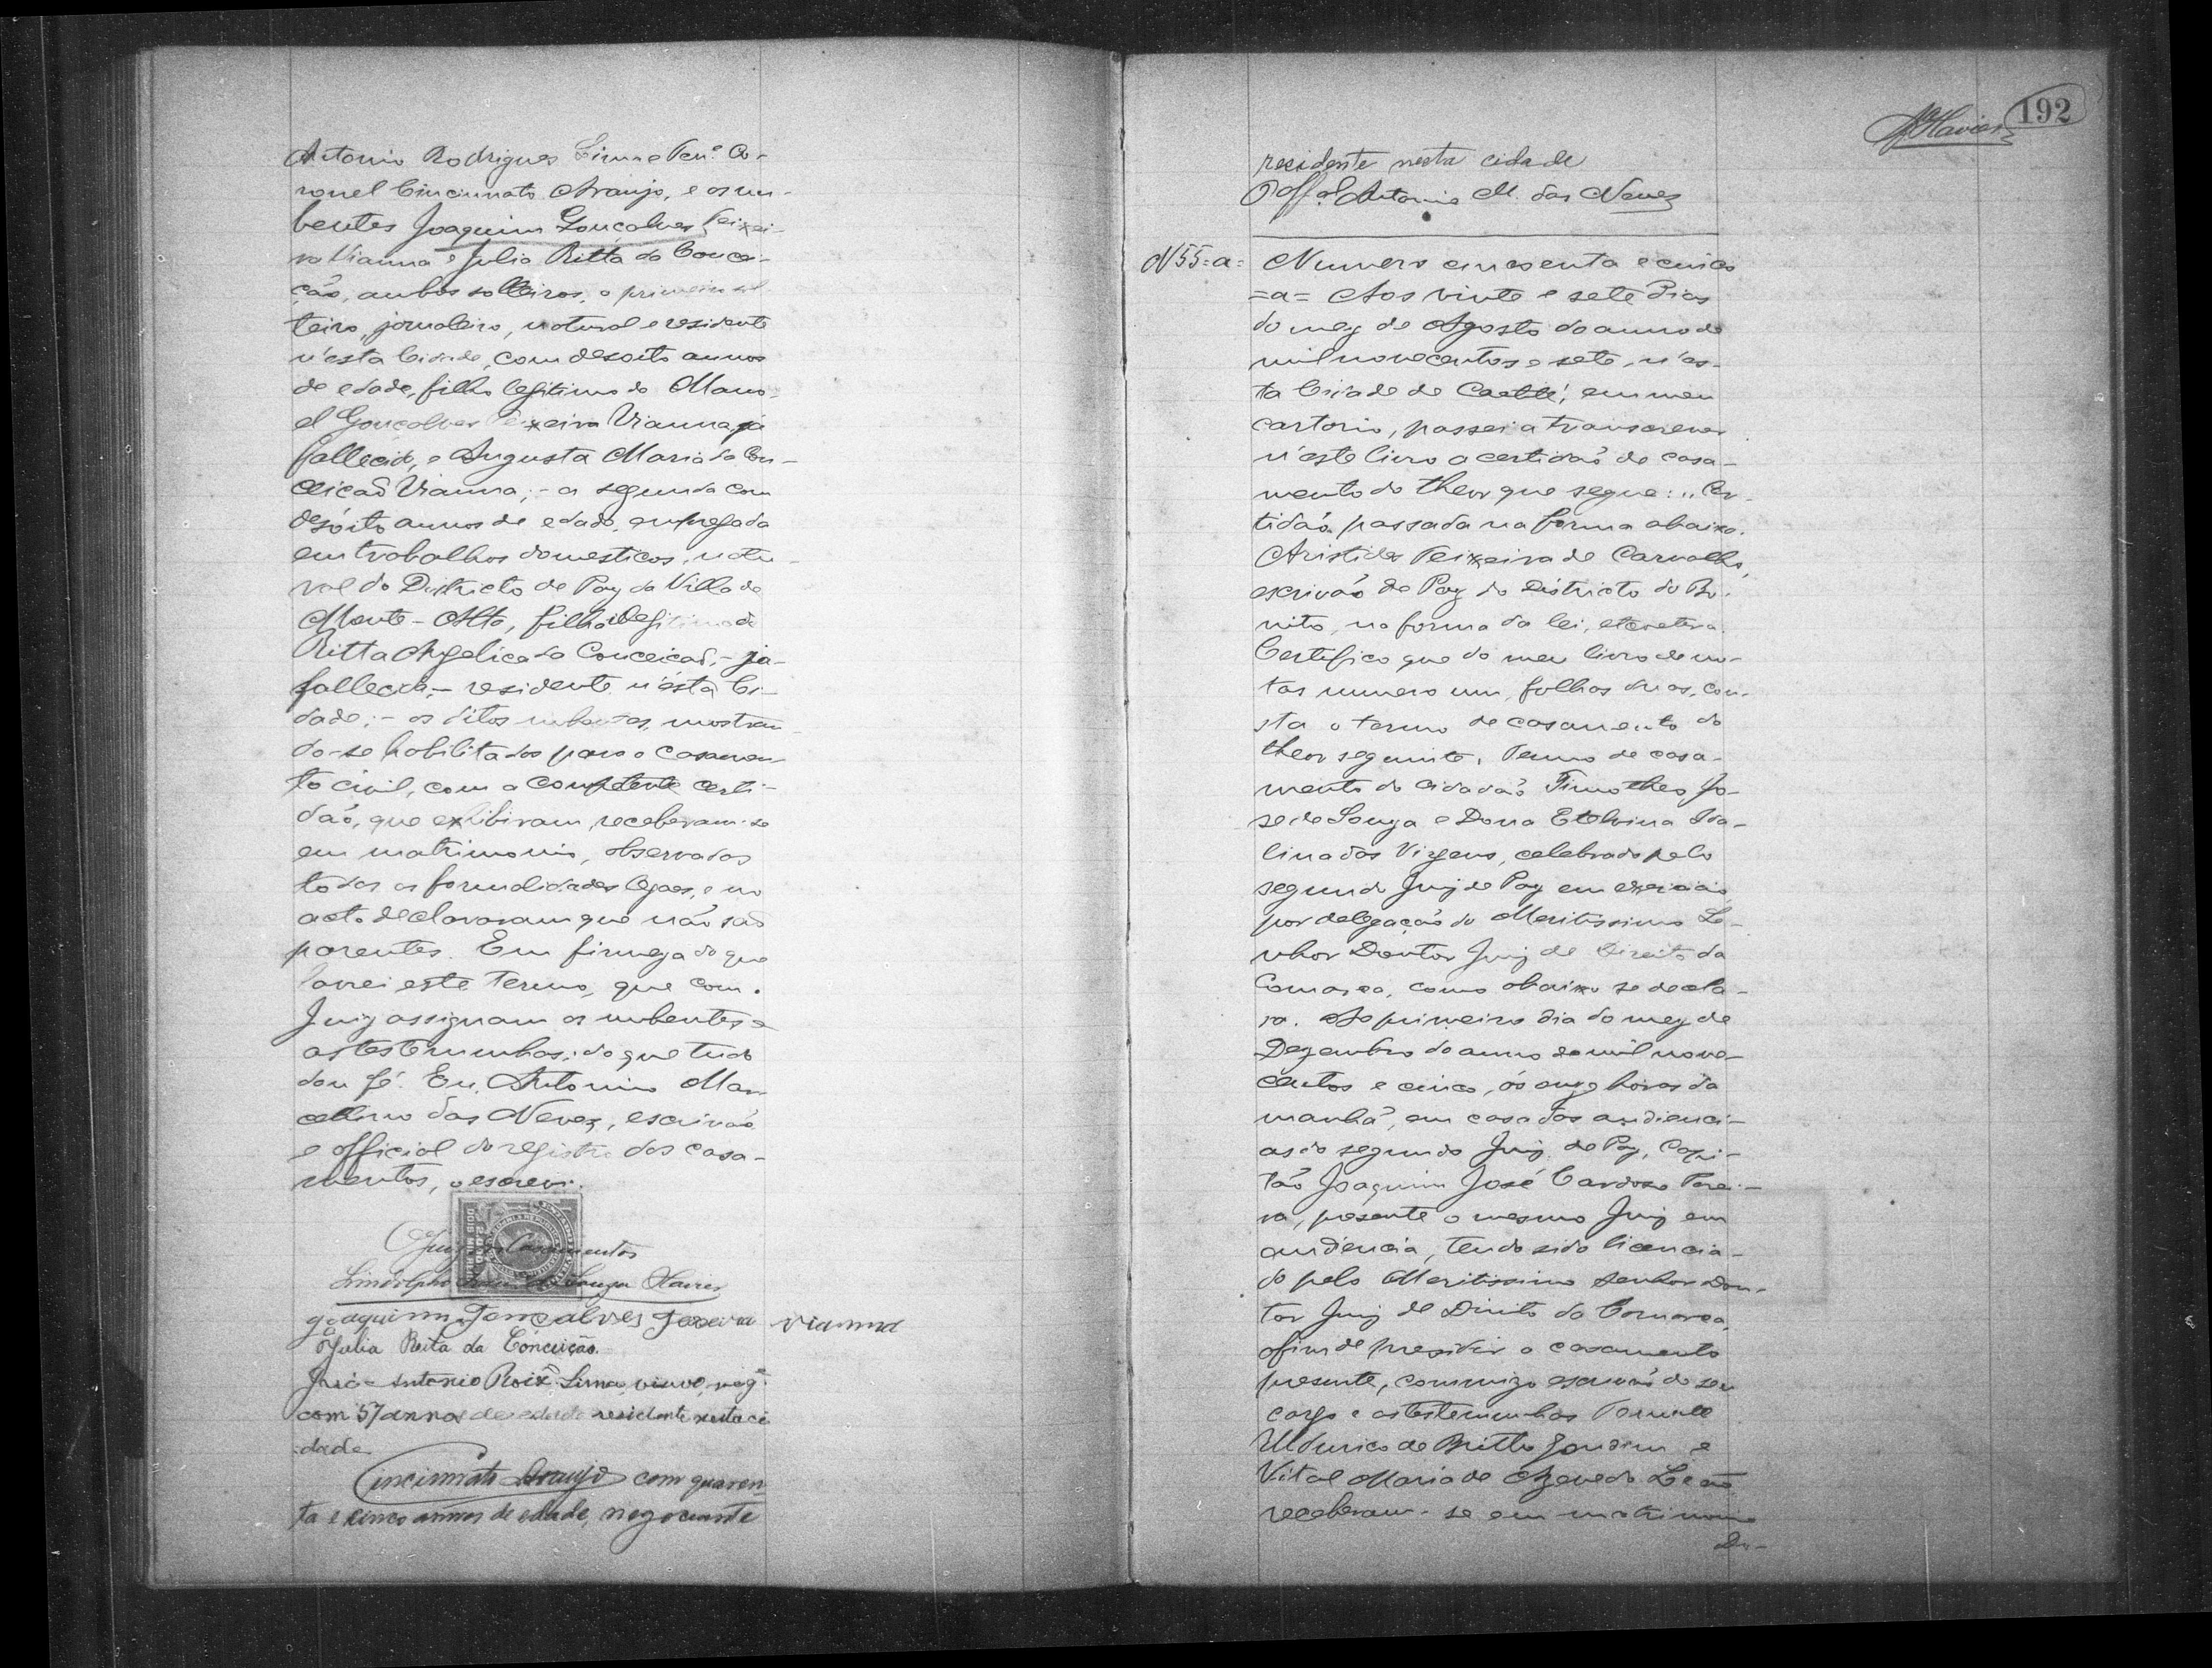 Antonio Rodrigues Lima e Ten.e Co-
ronel Cincinnato Araujo, e os nu-
bentes Joaquim Gonçalves Teixei-
ra Vianna e Julia Ritta da Concei-
ção, ambos solteiros, o primeiro sol-
teiro, jornaleiro, natural e residente
n'esta Cidade, com desoito annos
de edade, filho legitimo de Mano-
el Gonçalves Teixeira Vianna, já
fallecido, e Augusta Maria da Con-
ceição Vianna; - a segunda com
desoito annos de edade, empregada
em trabalhos domesticos, natu-
ral do Districto de Paz da Villa de
Monte-Alto, filha de
Ritta Angelica da Conceicaõ, - ja
fallecida, - residente n'esta Ci-
dade; - os ditos nubentes, mostran-
do-se habilitados para o casamen-
to civil, com a competente certi-
daõ, que exhibiram, receberam-se
em matrimonio, observadas
todas as formalidades legaes, e no
acto declararam que não saõ
parentes. Em firmeza do que
lavrei este termo, que com o
Juiz assignam os nubentes e
as testemunhas; do que tudo
dou fé. Eu, Antonio Mar-
cellino das Neves, escrivaõ
e official do registro dos casa-
mentos, o escrevi.
O Juiz de Casamentos
Lindolpho de Souza Xavier
Joaquim Gonsalves Texeira Vianna
Julia Reita da Conceição.
José Antonio Roiz Lima, viuvo, neg.e
com 57 annos de edade residente nesta ci
dade
Cincinnato Araujo com quaren-
ta e cinco annos de edade, negociante
192
Xavier
residente nesta cidade
O Off.al Antonio M. das Neves
N 55=a=
Numero cincoenta e cinco
=a= Aos vinte e sete dias
do mez de Agosto do anno de
mil novecentos e sete, n'es-
ta Cidade de Caetté, em meu
cartorio, passei a transcrever
n'este livro a certidaõ de casa-
mento do theor que segue: "Cer-
tidaõ passada na forma abaixo.
Aristides Teixeira de Carvalho,
escrivaõ de Paz do Districto do Bo-
nito, na forma da lei, etcetera.
Certifico que do meu livro de no-
tas numero um, folhas duas, con-
sta o termo de casamento do
theor seguinte, Termo de casa-
mento do cidadaõ Timotheo Jo-
se de Souza e Dona Etelvina Ida-
lina das Virgens, celebrado pelo
segundo Juiz de Paz em exercicio
por delegaçaõ do Meritissimo Se-
nhor Doutor Juiz de Direito da
Comarca, como abaixo se decla-
ra. Ao primeiro dia do mez de
Dezembro do anno de mil nove-
centos e cinco, ás onze horas da
manhã, em casa das audienci-
as do segundo Juiz de Paz, Capi-
tão Joaquim José Cardoso Perei-
ra, presente o mesmo Juiz em
audiencia, tendo sido licencia-
do pelo Meritissimo Senhor Dou-
tor Juiz de Direito da Comarca,
afim de presidir o casamento
presente, commigo escrivaõ do seu
cargo e as testemunhas
Uldurico de Britto Gondim e
Vital Maria de Azevedo Leão
receberam-se em matrimonio
Do-